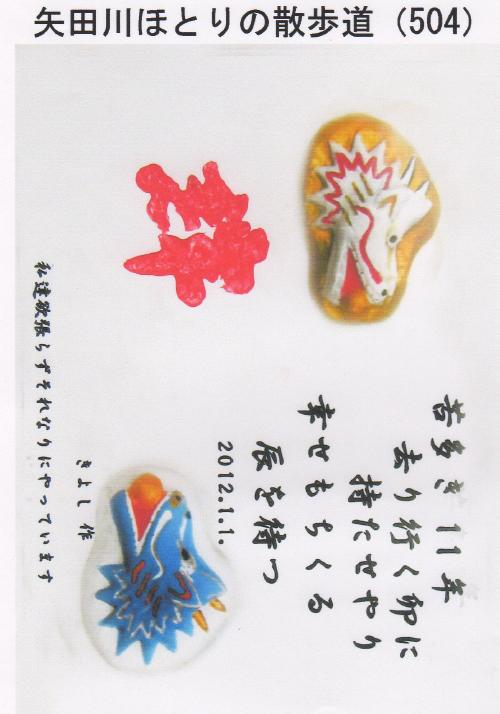 矢田川ほとりの散歩道（504）
苦多き 11年
去り行く卯に
持たせやり
幸せもちくる
辰を待つ
2012.1.1.
きよし 作
私達欲張らずそれなりにやっています